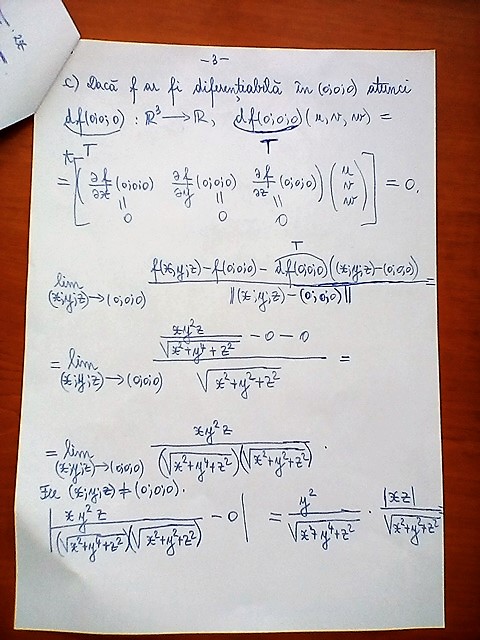 -3-
c) Dacă f ar fi diferențiabilă în (0,0,0) atunci
df(0,0,0) : ℝ³ → ℝ, df(0,0,0)(u, v, w) =
T T
= t[ ( ∂f/∂x (0,0,0) ∂f/∂y (0,0,0) ∂f/∂z (0,0,0) ) ( u v w ) ] = 0.
|| || ||
0 0 0
lim (x,y,z)→(0,0,0) ( f(x,y,z) - f(0,0,0) - df(0,0,0)((x,y,z)-(0,0,0)) ) / ||(x,y,z) - (0,0,0)|| =
T
= lim (x,y,z)→(0,0,0) ( xy²z / √(x²+y⁴+z²) - 0 - 0 ) / √(x²+y²+z²) =
= lim (x,y,z)→(0,0,0) xy²z / (√(x²+y⁴+z²))(√(x²+y²+z²)) .
Fie (x,y,z) ≠ (0,0,0).
| xy²z / (√(x²+y⁴+z²))(√(x²+y²+z²)) - 0 | = y² / √(x²+y⁴+z²) · |xz| / √(x²+y²+z²)